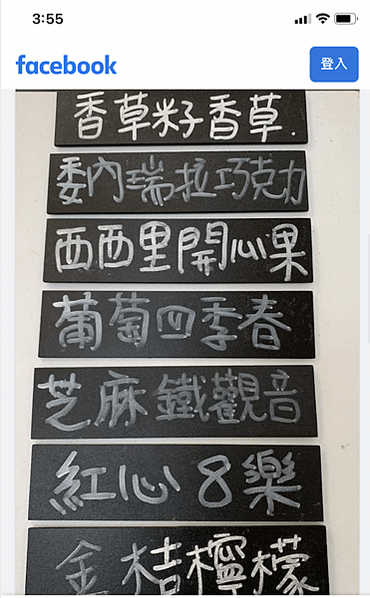 3:55
facebook
登入
香草籽香草.
委內瑞拉巧克力
西西里開心果
葡萄四季春
芝麻鐵觀音
紅心8樂
金桔檸檬